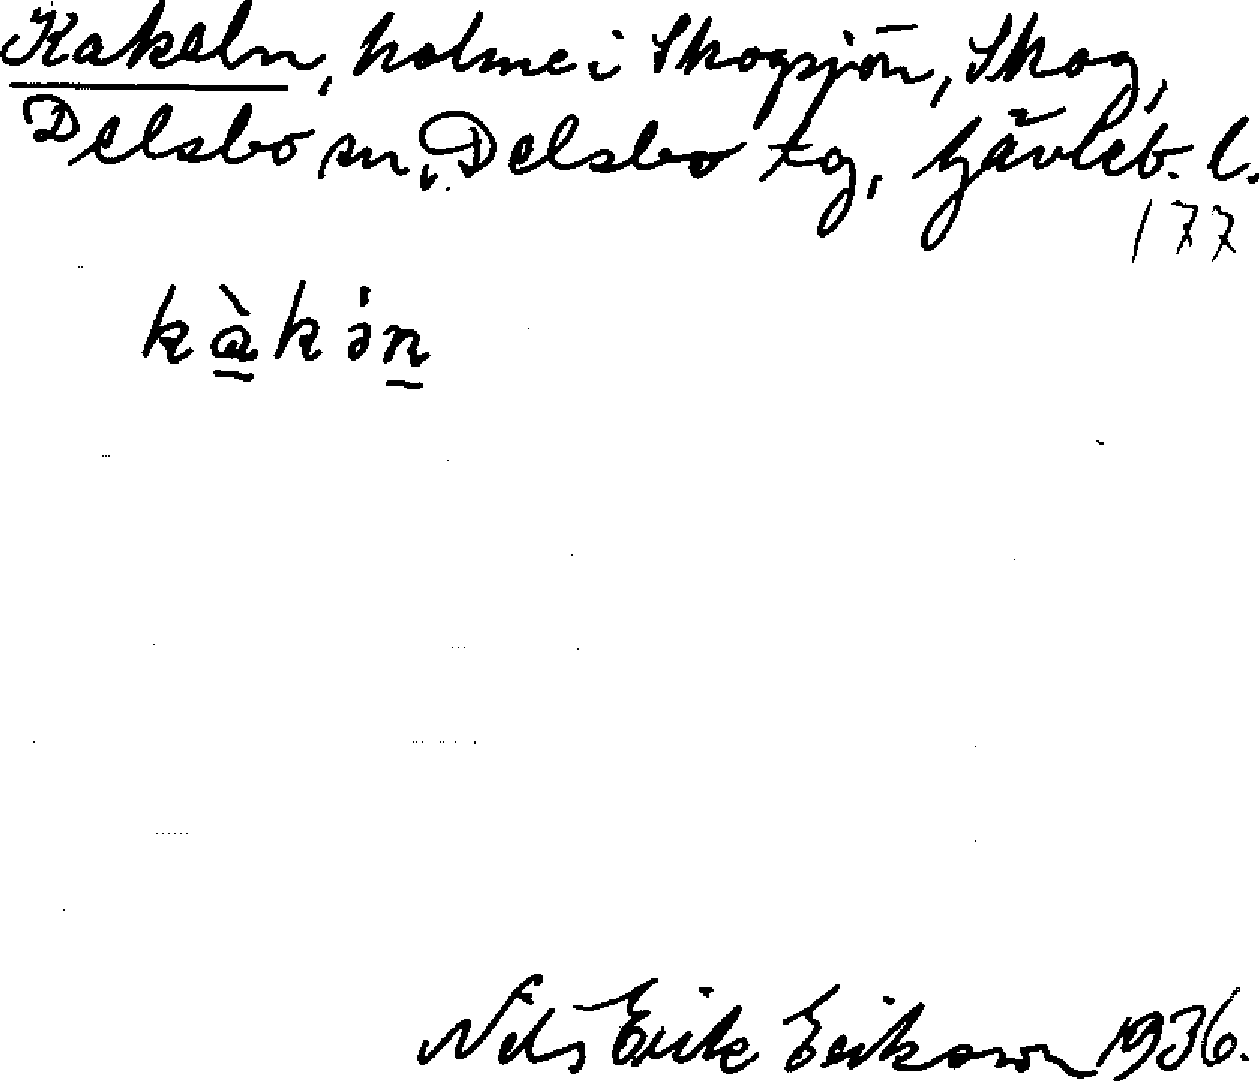 Kakeln, holme i Skogsjön, Skog,
Delsbo sn, Delsbo tg, Gävleb. l.
177
kàkə̇n
Nils Erik Erikson 1936.